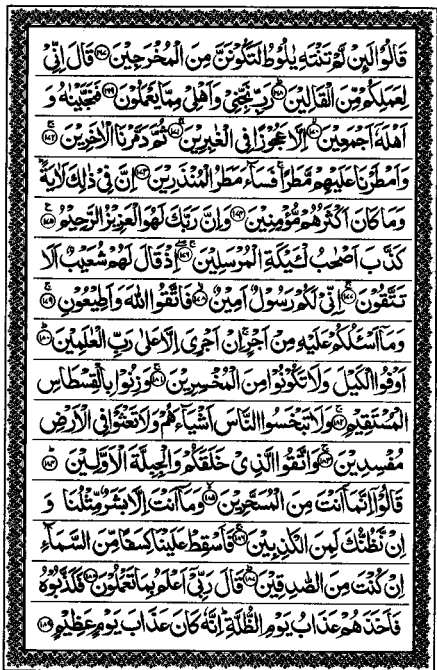 قَالُوْا لَئِنْ لَّمْ تَنْتَهِ يٰلُوْطُ لَتَكُوْنَنَّ مِنَ الْمُخْرَجِيْنَ ﴿۱۶۷﴾ قَالَ اِنِّیْ
لِعَمَلِكُمْ مِّنَ الْقَالِيْنَ ﴿۱۶۸﴾ رَبِّ نَجِّنِیْ وَاَهْلِیْ مِمَّا يَعْمَلُوْنَ ﴿۱۶۹﴾ فَنَجَّيْنٰهُ وَ
اَهْلَهٗۤ اَجْمَعِيْنَ ﴿۱۷۰﴾ اِلَّا عَجُوْزًا فِی الْغٰبِرِيْنَ ﴿۱۷۱﴾ ثُمَّ دَمَّرْنَا الْاٰخَرِيْنَ ﴿۱۷۲﴾
وَاَمْطَرْنَا عَلَيْهِمْ مَّطَرًا ۚ فَسَآءَ مَطَرُ الْمُنْذَرِيْنَ ﴿۱۷۳﴾ اِنَّ فِیْ ذٰلِكَ لَاٰيَةً ؕ
وَمَا كَانَ اَكْثَرُهُمْ مُّؤْمِنِيْنَ ﴿۱۷۴﴾ وَاِنَّ رَبَّكَ لَهُوَ الْعَزِيْزُ الرَّحِيْمُ ﴿۱۷۵﴾
كَذَّبَ اَصْحٰبُ لْئَيْكَةِ الْمُرْسَلِيْنَ ﴿۱۷۶﴾ اِذْ قَالَ لَهُمْ شُعَيْبٌ اَلَا
تَتَّقُوْنَ ﴿۱۷۷﴾ اِنِّیْ لَكُمْ رَسُوْلٌ اَمِيْنٌ ﴿۱۷۸﴾ فَاتَّقُوا اللّٰهَ وَاَطِيْعُوْنِ ﴿۱۷۹﴾
وَمَآ اَسْئَلُكُمْ عَلَيْهِ مِنْ اَجْرٍ ۚ اِنْ اَجْرِیَ اِلَّا عَلٰی رَبِّ الْعٰلَمِيْنَ ﴿۱۸۰﴾
اَوْفُوا الْكَيْلَ وَلَا تَكُوْنُوْا مِنَ الْمُخْسِرِيْنَ ﴿۱۸۱﴾ وَزِنُوْا بِالْقِسْطَاسِ
الْمُسْتَقِيْمِ ﴿۱۸۲﴾ وَلَا تَبْخَسُوا النَّاسَ اَشْيَآءَهُمْ وَلَا تَعْثَوْا فِی الْاَرْضِ
مُفْسِدِيْنَ ﴿۱۸۳﴾ وَاتَّقُوا الَّذِیْ خَلَقَكُمْ وَالْجِبِلَّةَ الْاَوَّلِيْنَ ﴿۱۸۴﴾
قَالُوْۤا اِنَّمَآ اَنْتَ مِنَ الْمُسَحَّرِيْنَ ﴿۱۸۵﴾ وَمَآ اَنْتَ اِلَّا بَشَرٌ مِّثْلُنَا وَ
اِنْ نَّظُنُّكَ لَمِنَ الْكٰذِبِيْنَ ﴿۱۸۶﴾ فَاَسْقِطْ عَلَيْنَا كِسَفًا مِّنَ السَّمَآءِ
اِنْ كُنْتَ مِنَ الصّٰدِقِيْنَ ﴿۱۸۷﴾ قَالَ رَبِّیْۤ اَعْلَمُ بِمَا تَعْمَلُوْنَ ﴿۱۸۸﴾ فَكَذَّبُوْهُ
فَاَخَذَهُمْ عَذَابُ يَوْمِ الظُّلَّةِ ؕ اِنَّهٗ كَانَ عَذَابَ يَوْمٍ عَظِيْمٍ ﴿۱۸۹﴾